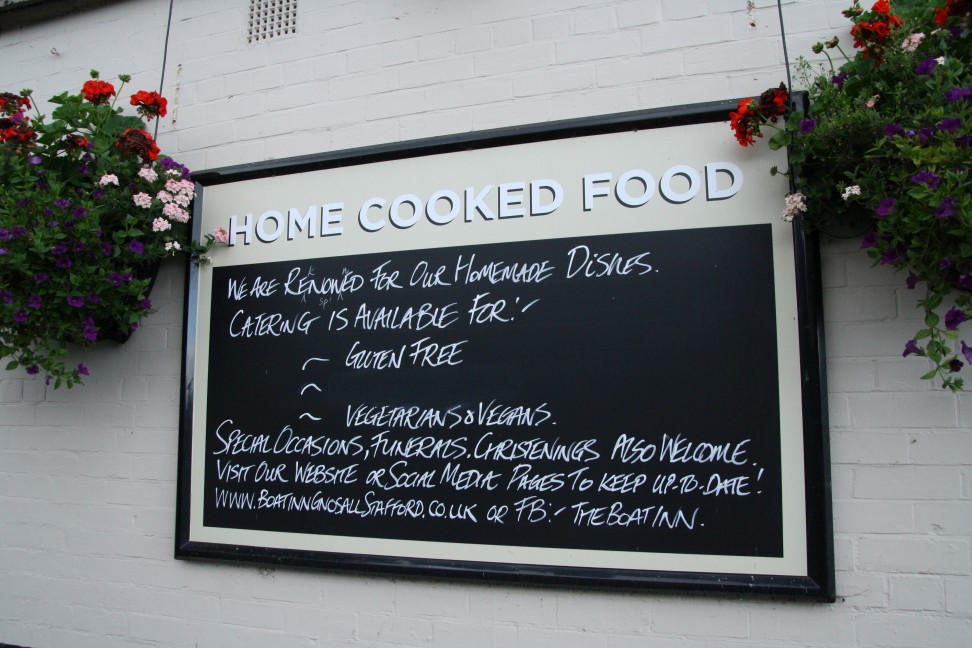 HOME COOKED FOOD
WE ARE RENOWNED FOR OUR HOMEMADE DISHES.
k n
sp!
CATERING IS AVAILABLE FOR:-
~ GLUTEN FREE
~
~ VEGETARIANS & VEGANS.
SPECIAL OCCASIONS, FUNERALS. CHRISTENINGS ALSO WELCOME.
VISIT OUR WEBSITE OR SOCIAL MEDIA PAGES TO KEEP UP-TO-DATE!
WWW.BOATINNGNOSALLSTAFFORD.CO.UK OR FB:- THEBOATINN.